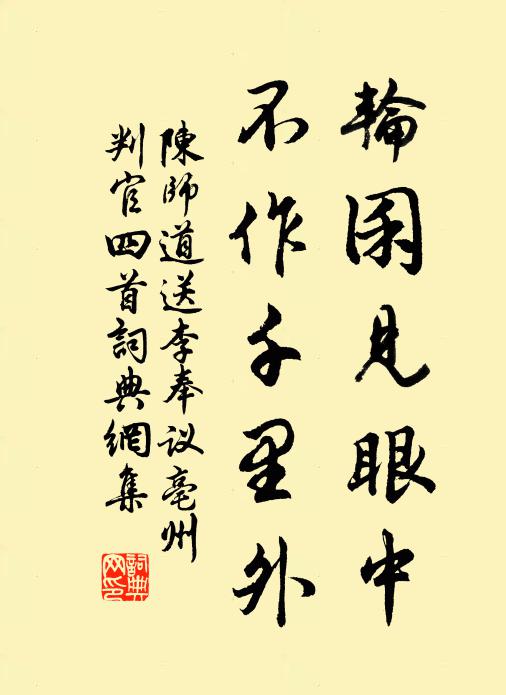 輪囷見眼中
不作千里外
陳師道送李奉议亳州
判官四首詞典網集
詞典
网印